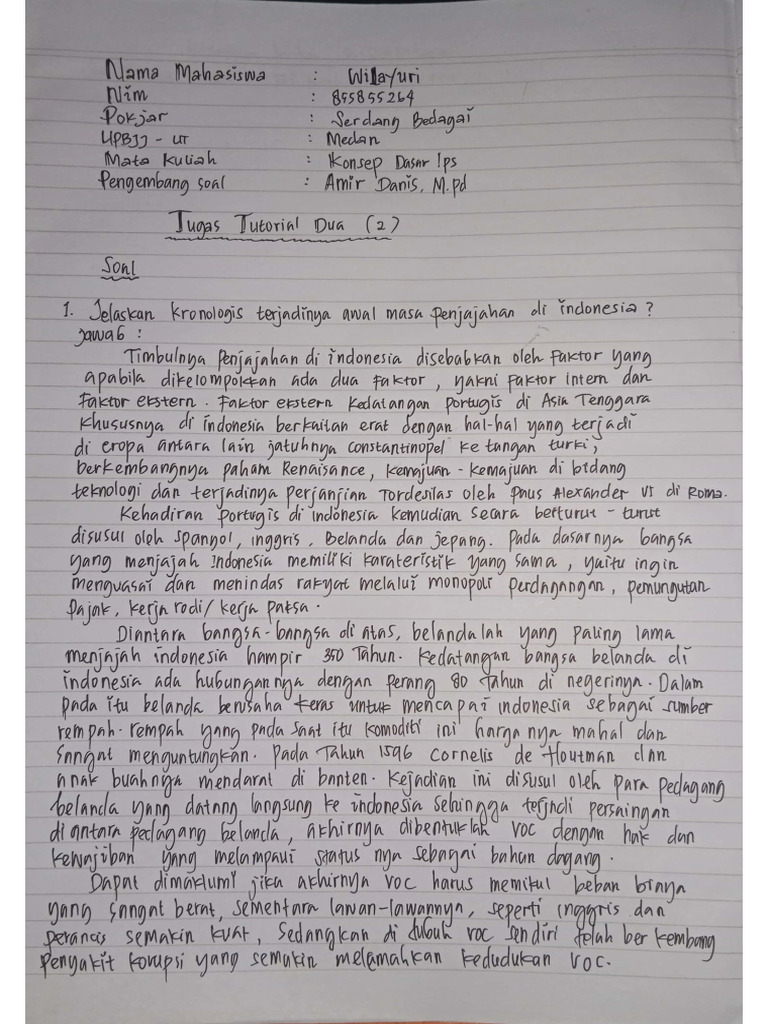 Nama Mahasiswa : Wilayuri
Nim : 855855264
Pokjar : Serdang Bedagai
UPBJJ - UT : Medan
Mata Kuliah : Konsep Dasar Ips
Pengembang soal : Amir Danis, M.pd
Tugas Tutorial Dua (2)
Soal
1. Jelaskan kronologis terjadinya awal masa penjajahan di indonesia ?
jawab :
Timbulnya Penjajahan di indonesia disebabkan oleh Faktor yang
apabila dikelompokkan ada dua faktor, yakni faktor intern dan
Faktor ekstern. Faktor ekstern kedatangan portugis di Asia Tenggara
khususnya di indonesia berkaitan erat dengan hal-hal yang terjadi
di eropa antara lain jatuhnya constantinopel ke tangan turki,
berkembangnya paham Renaisance, kemajuan - kemajuan di bidang
teknologi dan terjadinya perjanjian Tordesilas oleh Paus Alexander VI di Roma.
Kehadiran Portugis di indonesia kemudian secara berturut - turut
disusul oleh spanyol, inggris, Belanda dan jepang. Pada dasarnya bangsa
yang menjajah Indonesia memiliki karateristik yang sama, yaitu ingin
menguasai dan menindas rakyat melalui monopoli perdagangan, pemungutan
Pajak, kerja rodi/kerja paksa.
Diantara bangsa-bangsa di atas, belandalah yang paling lama
menjajah indonesia hampir 350 Tahun. Kedatangan bangsa belanda di
indonesia ada hubungannya dengan perang 80 Tahun di negerinya. Dalam
pada itu belanda berusaha keras untuk mencapai indonesia sebagai sumber
rempah-rempah yang pada saat itu komoditi ini harganya mahal dan
sangat menguntungkan. Pada Tahun 1596 Cornelis de Houtman dan
anak buahnya mendarat di banten. Kejadian ini disusul oleh para pedagang
belanda yang datang langsung ke indonesia sehingga terjadi persaingan
diantara pedagang belanda, akhirnya dibentuklah VOC dengan hak dan
kewajiban yang melampaui status nya sebagai bahan dagang.
Dapat dimaklumi jika akhirnya VOC harus memikul beban biaya
yang sangat berat, sementara lawan-lawannya, seperti inggris dan
perancis semakin kuat, Sedangkan di tubuh VOC sendiri telah berkembang
penyakit korupsi yang semakin melemahkan kedudukan VOC.